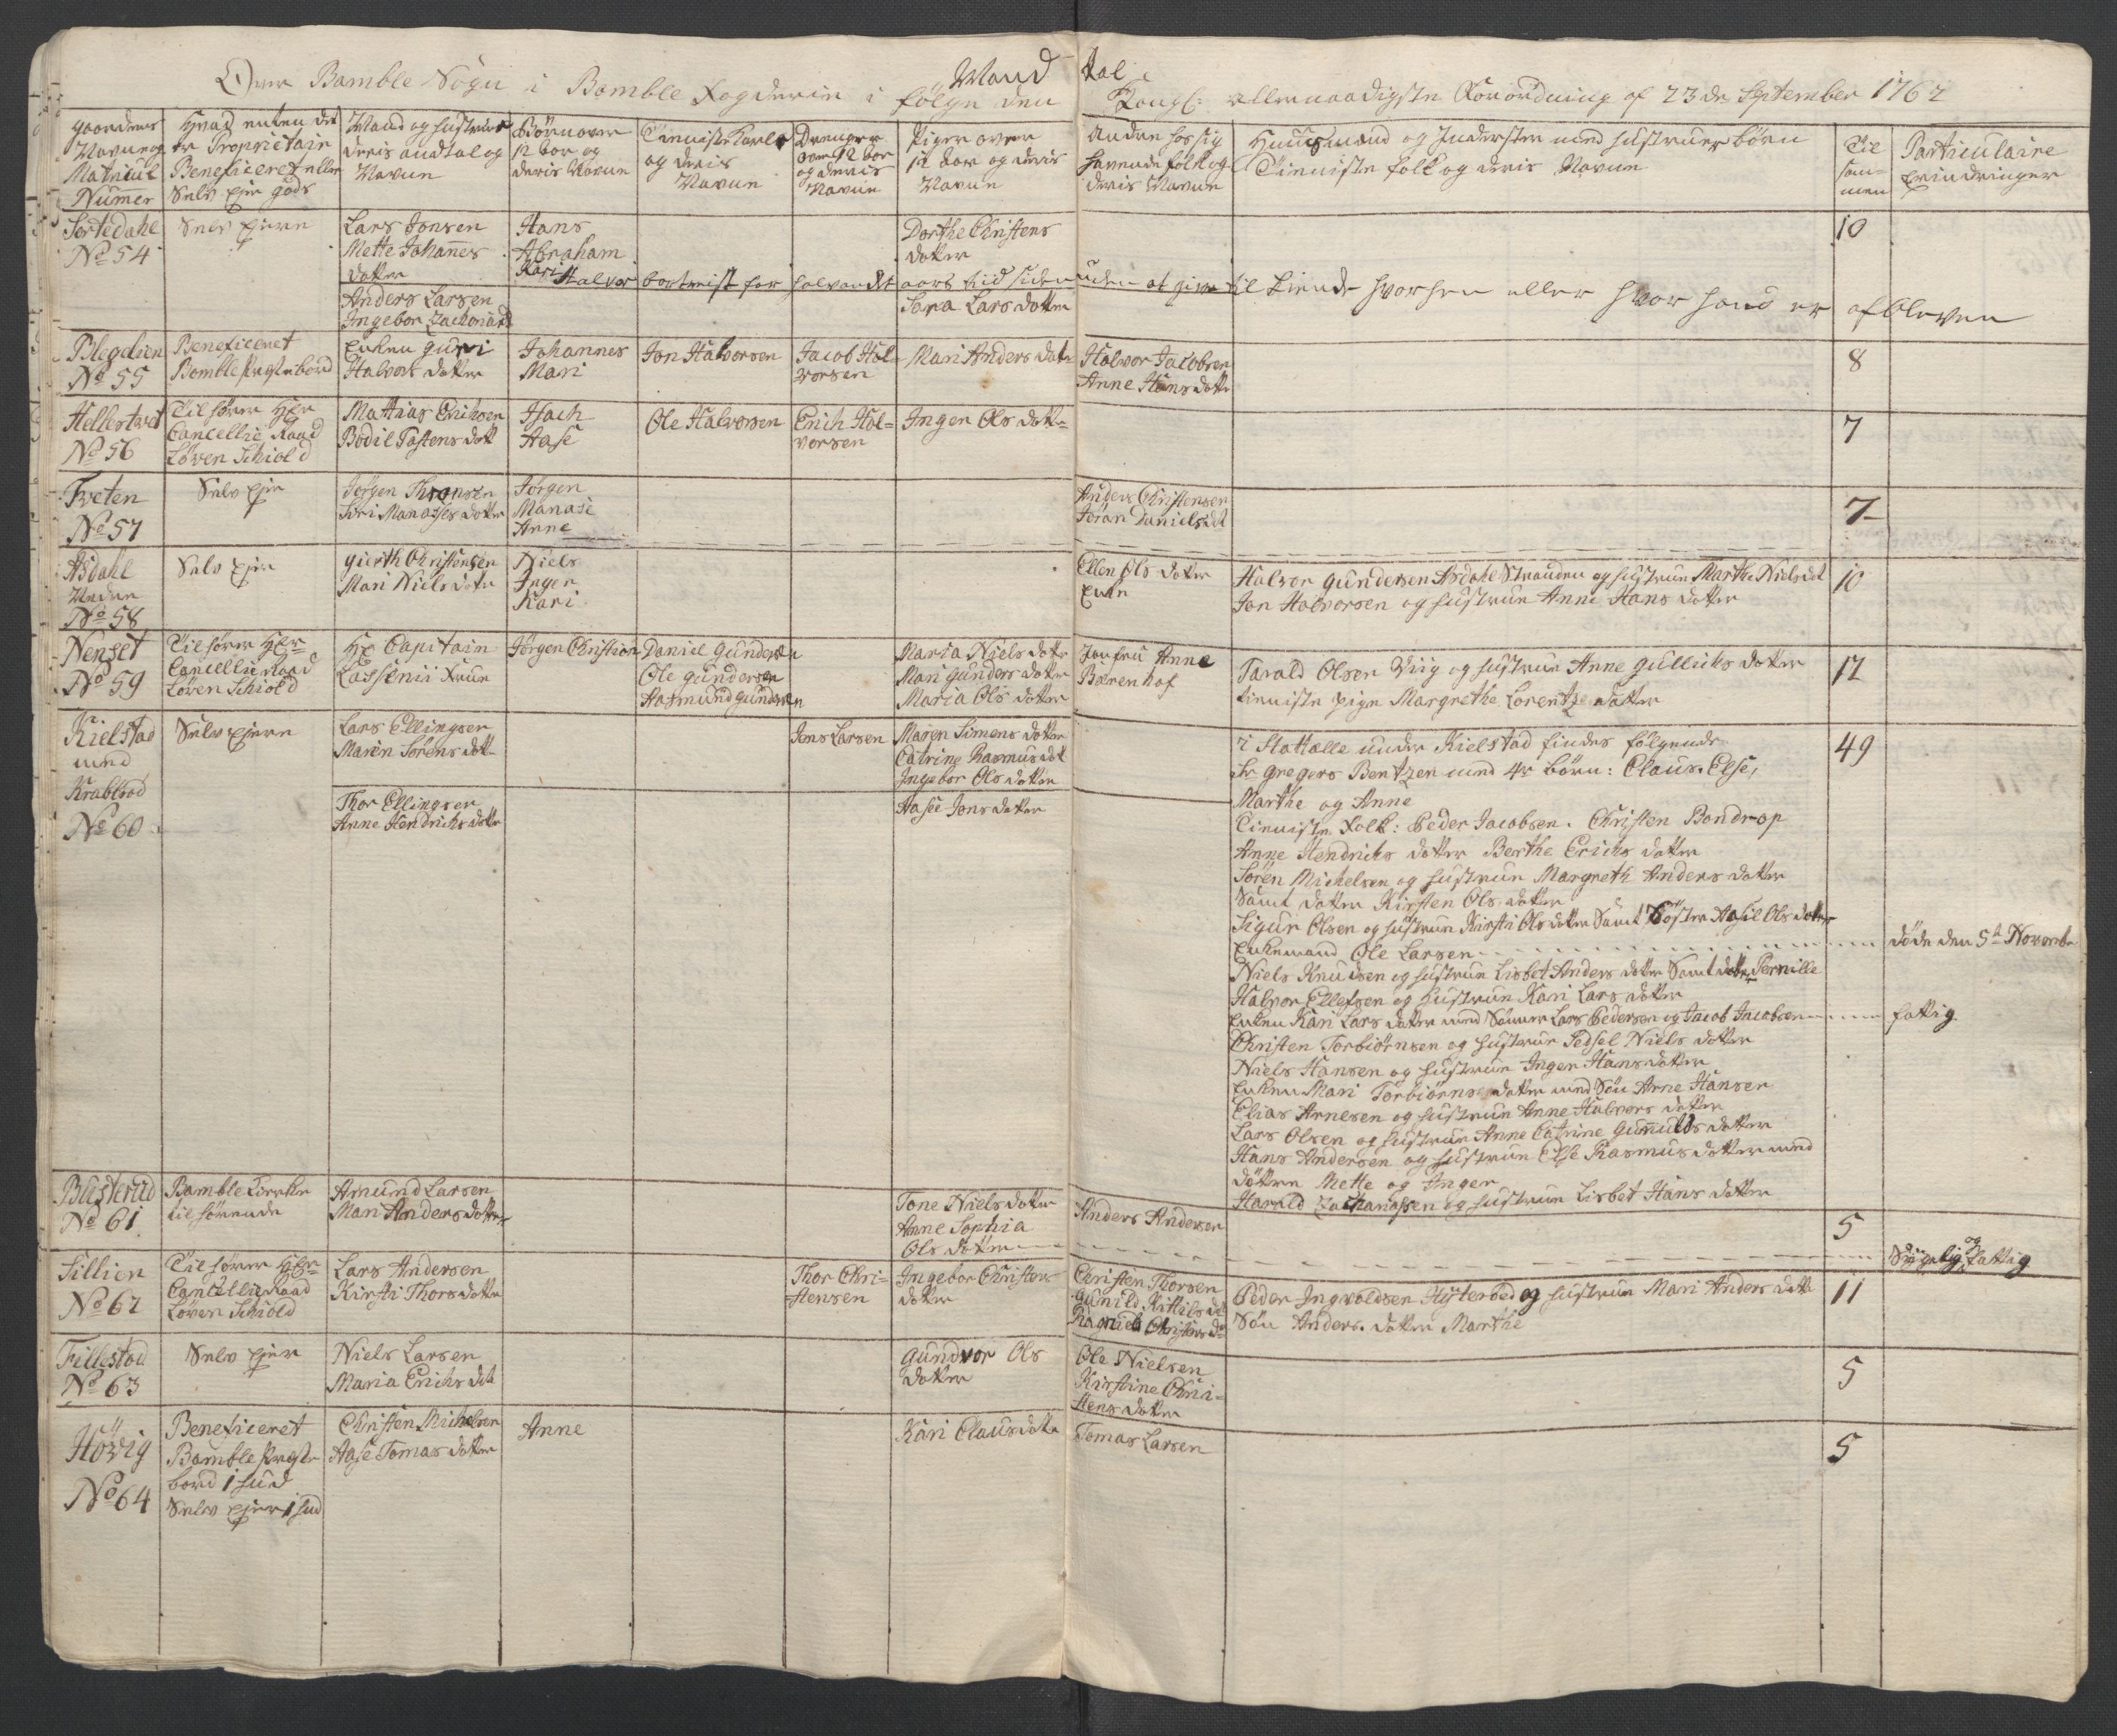 Mand Tal
Over Bamble Sogn i Bamble Fogderie i følge den Kongl: allernaadigste Forordning af 23de September 1762
Gaardenes Navne og Matricul Numer
Hvad enten det er Proprietair Beneficeret eller Selv Eyer gods
Mand og Hustrue deris andtal og Navne
Børn over 12 Aar og deris Navne
Tieniste Karle og deris Navne
Drenge over 12 Aar og deris Navne
Piger over 12 Aar og deris Navne
Andre hos sig havende folk og deris Navne
Huusmænd og Inderster med hustruer børn
Tieniste folk og deris Navne
Til sammen
Particulaire Erindringer
Sortedahl
No 54
Selv Eyere
Lars Jonsen
Mette Johannes
datter
Hans
Abraham
Kari
Dorthe Christens
datter
10
Halvor bortreist for halvandet aars tiid siden uden at give til kiende hvorhen eller hvor hand er afbleven
Anders Larsen
Ingebor Zachariæd
Sara Lars datter
Blegelien
No 55
Beneficeret
Bamble Præstebord
Enken Guri
Halvors datter
Johannes
Mari
Jon Halvorsen
Jacob Hal-
vorsen
Mari Anders datr
Halvor Jacobsen
Anne Hans datr
8
Hellestvet
No 56
Tilhører Hr
Cancellie Raad
Løven Schiold
Mathias Erichsen
Bodil Tastens datt
Isach
Aase
Ole Halvorsen
Erich Hal-
vorsen
Inger Ols datter
7
Tveten
No 57
Selv Eyer
Jörgen Thronsen
Siri Manasses datter
Jorgen
Manase
Anne
Anders Christensen
Joran Daniels dt
7
Asdahl
Nedre
No 58
Selv Eyer
Gierth Christensen
Mari Niels datr
Niels
Inger
Kari
Ellen Ols datter
Enke
Halvor Gundersen Asdahl Stranden og hustrue Marthe Niels dat
Jon Halvorsen og hustrue Anne Hans datter
10
Nenset
No 59
Tilhører Hr
Cancellie Raad
Løven Schiold
Hr Capitain
Lassenii Frue
Jörgen Christian
Daniel Gundersen
Ole Gundersen
Hasmund Gundersen
Maria Niels datr
Mari Gunders datr
Maria Ols datter
Jomfru Anne
Bærenhof
Tarald Olsen Viig og hustrue Anne Gullichs datter
tieniste pige Margrethe Lorentze datter
12
Kielstad
med
Krabberød
No 60
Selv Eyere
Lars Ellingsen
Maren Sørens dat
Jens Larsen
Maren Simens datter
Catrine Rasmus dat
Ingebor Ols datter
Thor Ellingsen
Anne Hendrichs datr
Aase Jons datter
i Stathælle under Kielstad findes følgende
Sr Gregers Bentzen med 4r børn: Claus, Else,
Marthe og Anne
Tieniste Folk: Peder Jacobsen. Christen Bondrop
Anne Hendrichs datter Berthe Erichs datter
Sören Michelsen og hustrue Margreth Anders datter
Samt datter Kirsten Ols datter
Sigur Olsen og hustrue Kirsti Ols datter Samt Söster Aasil Ols datter
Enkemand Ole Larsen
Niels Knudsen og hustrue Lisbet Anders datter Samt datter Pernille
Halvor Ellefsen og hustrue Kari Lars datter
Enken Kari Lars datter med Sönner Lars Pedersen og Jacob Jacobsen
Christen Torbiörnsen og hustrue Sedsel Niels datter
Niels Hansen og hustrue Inger Hans datter
Enken Mari Torbiörns datter med Sön Arne Hansen
Elias Arnesen og hustrue Anne Halvors datter
Lars Olsen og hustrue Anne Catrine Gunnulds datter
Hans Andersen og hustrue Else Rasmus datter med
döttre Mette og Inger
Harald Zachariasen og hustrue Lisbet Hans datter
49
døde den 5te Novembr
fattig
Busterud
No 61
Bamble Kirke
tilhørende
Amund Larsen
Mari Anders datter
Tone Niels datter
Anne Sophia
Ols datter
Anders Andersen
5
Sygelig og fattig
Sillien
No 62
Tilhører Hr
Cancellie Raad
Løven Schiold
Lars Andersen
Kirsti Thors datter
Thor Chri-
stensen
Ingebor Christens
datter
Christen Thorsen
Gunild Kittils dt
Ragnild Christens dr
Peder Ingvoldsen Hysterød og hustrue Mari Anders datter
Sön Anders. datter Marthe
11
Fillestad
No 63
Selv Eyer
Niels Larsen
Maria Erichs dat
Gundvor Ols
datter
Ole Nielsen
Kirstine Chri-
stens datter
5
Hövig
No 64
Beneficeret
Bamble Præste
bord 1 hud
Selv Eyer 1 hud
Christen Michelsen
Aase Tomas datter
Anne
Kari Claus datter
Tomas Larsen
5